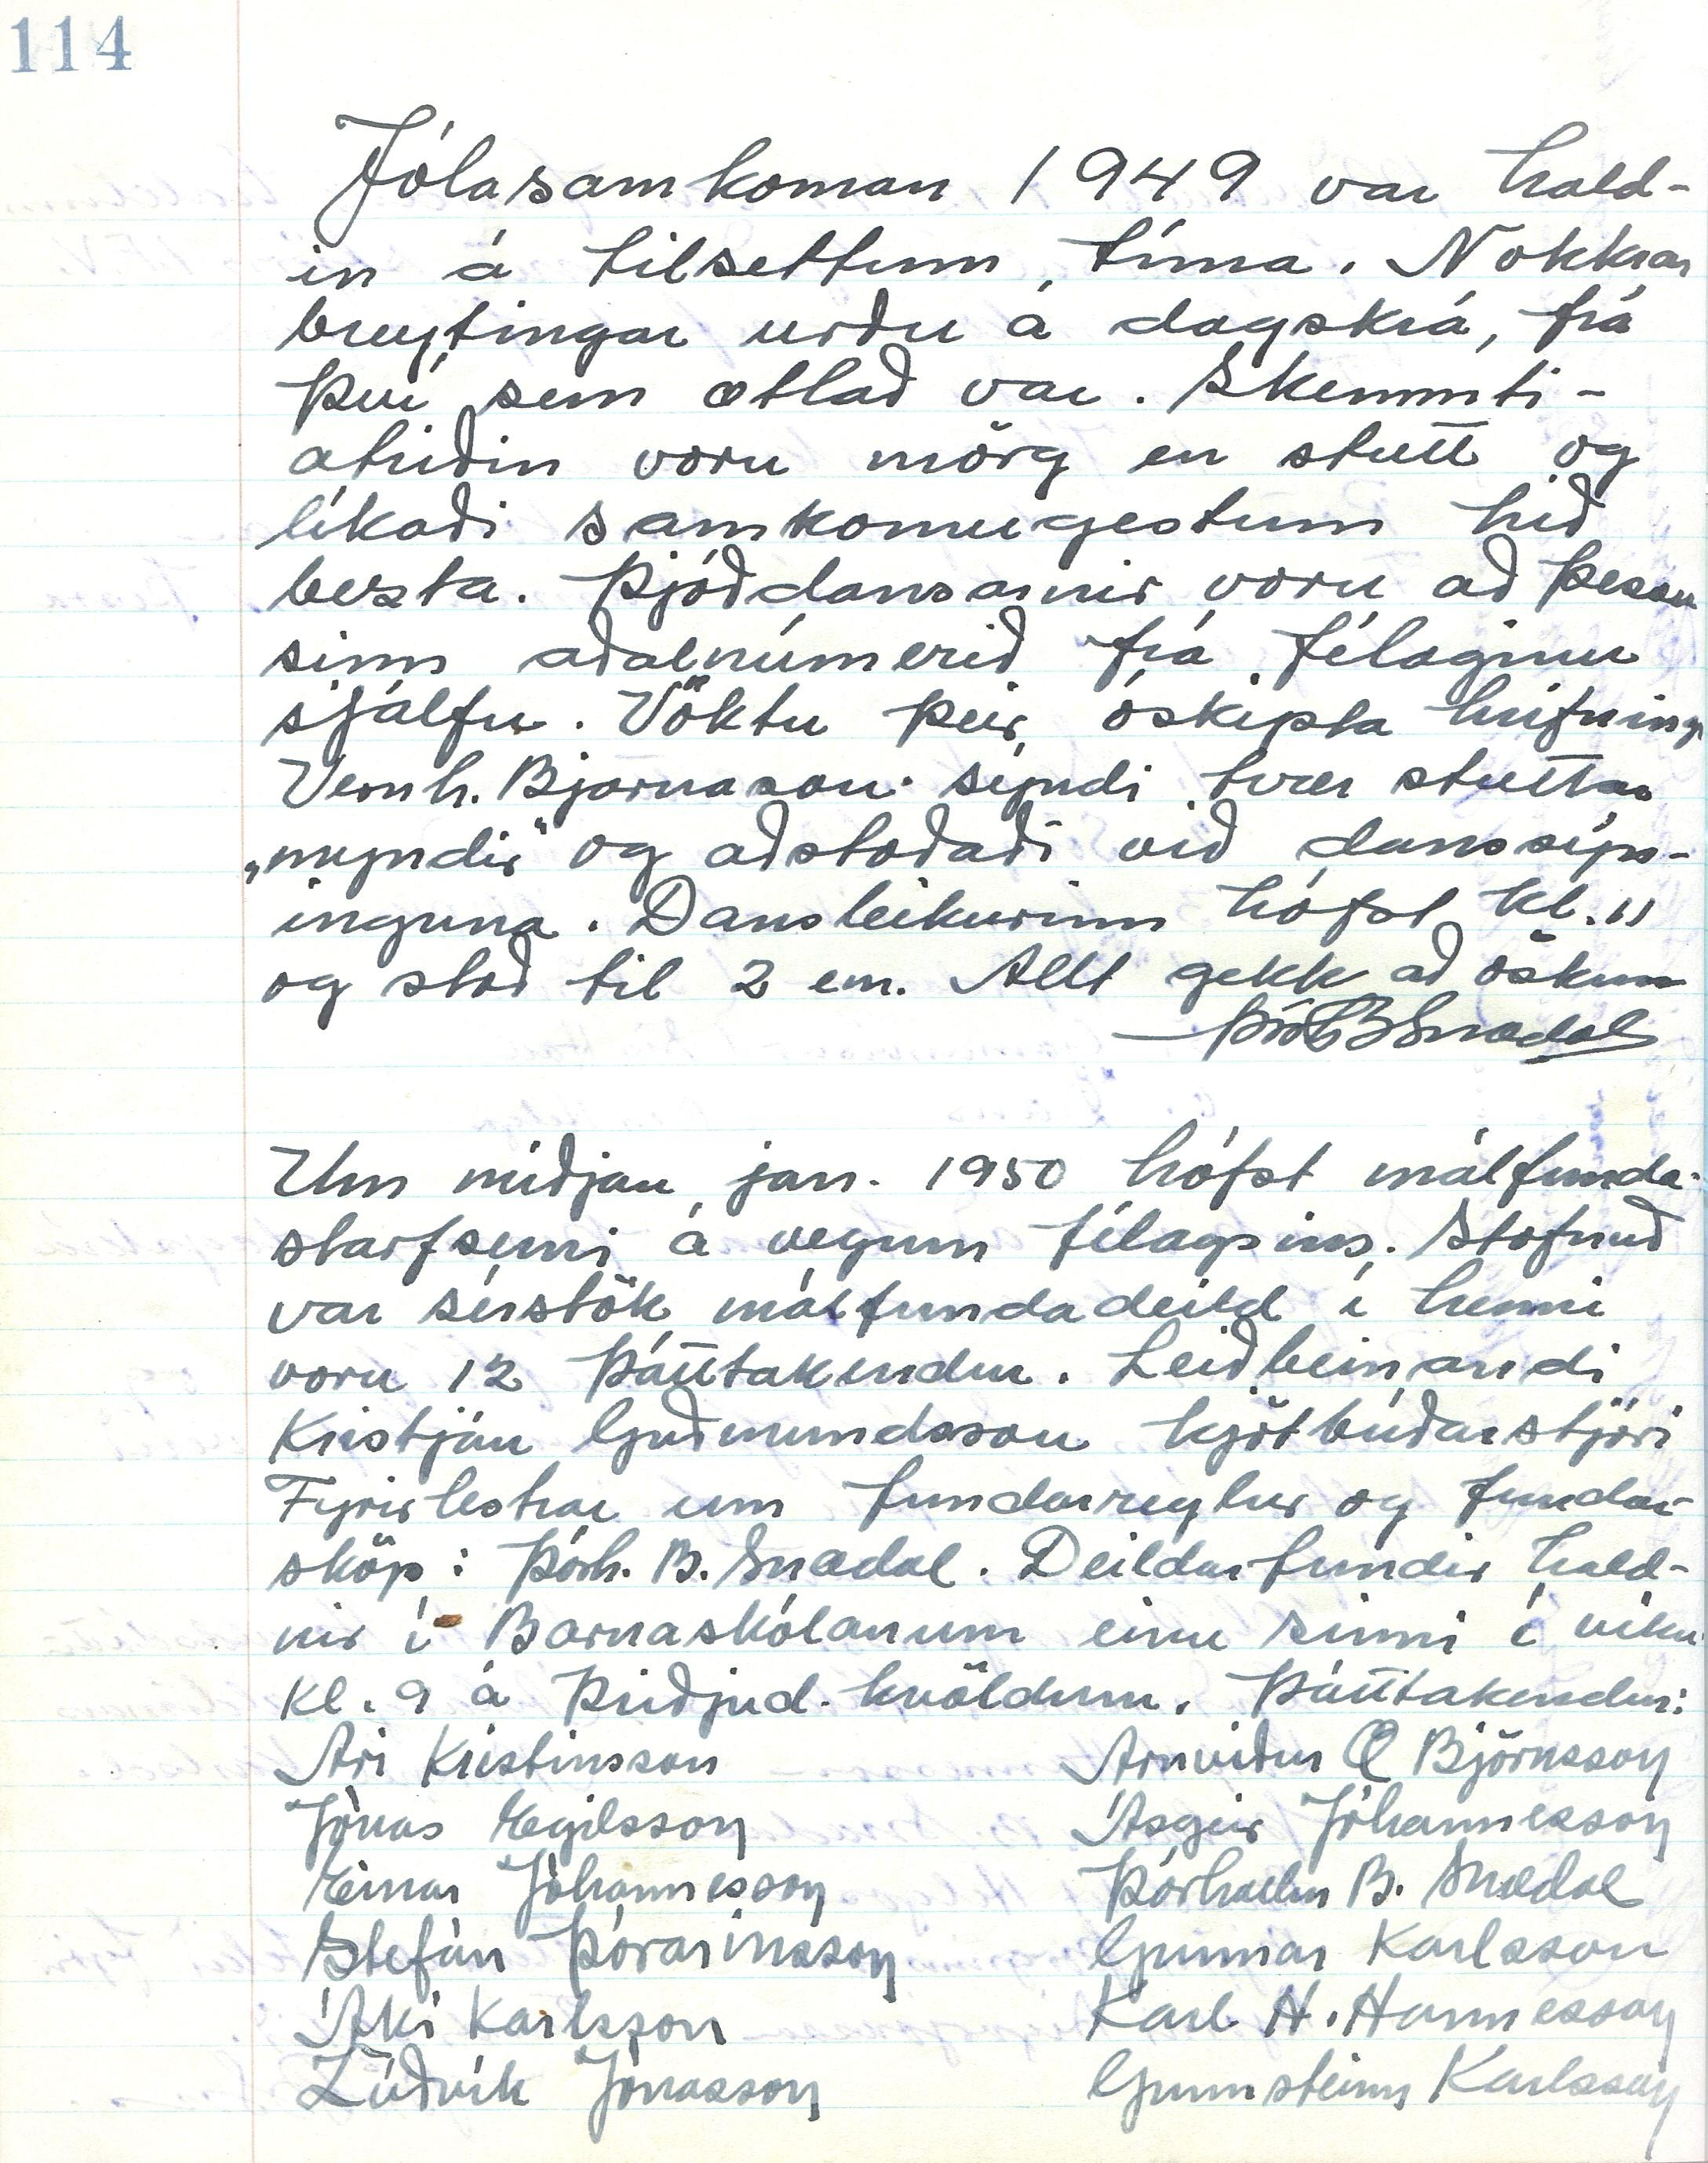 114
Jólasamkoman 1949 var hald-
in á tilsettum tíma. Nokkrar
breytingar urðu á dagskrá, frá
því sem ætlað var. Skemmti-
atriðin voru mörg en stutt og
líkaði samkomugestum hið
bezta. Þjóðdansarnir voru að þessu
sinni aðalnúmerið frá félaginu
sjálfu. Vöktu þeir óskipta hrifningu
Vernh. Bjarnason sýndi tvær stuttar
„myndir" og aðstoðaði við danssýn-
inguna. Dansleikurinn hófst kl. 11
og stóð til 2 em. Allt gekk að óskum
Þórh B Snædal
Um miðjan jan. 1950 hófst málfunda-
starfsemi á vegum félagsins. Stofnuð
var sérstök málfundadeild í henni
voru 12 þátttakendur. Leiðbeinandi
Kristján Guðmundsson kjötbúðarstjóri
Fyrirlestrar um fundarreglur og fundar-
sköp: Þórh. B. Snædal. Deildarfundir hald-
nir í Barnaskólanum einu sinni í viku
kl. 9 á þriðjud. kvöldum. Þátttakendur:
Ari Kristinsson Arnviður Æ Björnsson
Jónas Egilsson Ásgeir Jóhannesson
Einar Jóhannesson Þórhallur B. Snædal
Stefán Þórarinsson Gunnar Karlsson
Áki Karlsson Karl H. Hannesson
Lúðvík Jónasson Gunnsteinn Karlsson